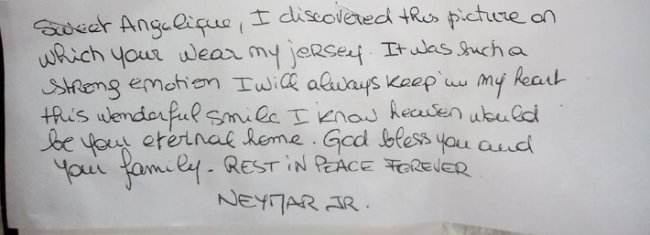 Sweet Angelique, I discovered this picture on
which your wear my jersey. It was such a
strong emotion I will always keep in my heart
this wonderful smile I know heaven would
be your eternal home. God bless you and
your family. REST IN PEACE FOREVER
NEYMAR JR.